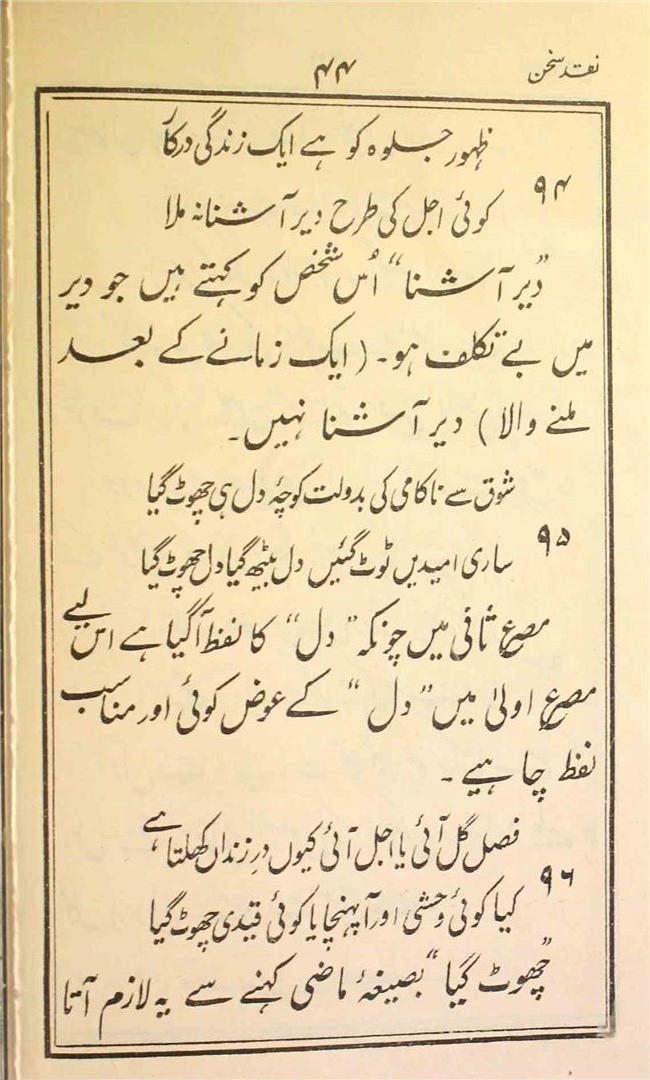 نقد سخن
۴۴
ظہور جلوہ کو ہے ایک زندگی درکار
۹۴
کوئی اجل کی طرح دیر آشنا نہ ملا
”دیر آشنا“ اُس شخص کو کہتے ہیں جو دیر
میں بے تکلف ہو۔ (ایک زمانے کے بعد
ملنے والا) دیر آشنا نہیں۔
شوق سے ناکامی کی بدولت کوچۂ دل ہی چھوٹ گیا
۹۵
ساری امیدیں ٹوٹ گئیں دل بیٹھ گیا دل چھوٹ گیا
مصرع ثانی میں چونکہ ”دل“ کا لفظ آگیا ہے اس لیے
مصرع اولیٰ میں ”دل“ کے عوض کوئی اور مناسب
لفظ چاہیے۔
فصل گل آئی یا اجل آئی کیوں درِ زنداں کھلتا ہے
۹۶
کیا کوئی وحشی اور آپہنچا یا کوئی قیدی چھوٹ گیا
”چھوٹ گیا“ بصیغۂ ماضی کہنے سے یہ لازم آتا